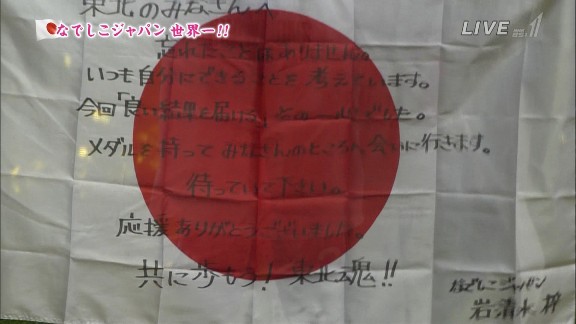 なでしこジャパン 世界一!!
LIVE
東北のみなさんへ
忘れたことはありません。
いつも自分にできることを考えています。
今回「良い結果を届ける」
メダルを持ってみなさんのところへ会いに行きます。
待っていて下さい。
応援ありがとうございました。
共に歩もう!東北魂!!
なでしこジャパン
岩清水 梓